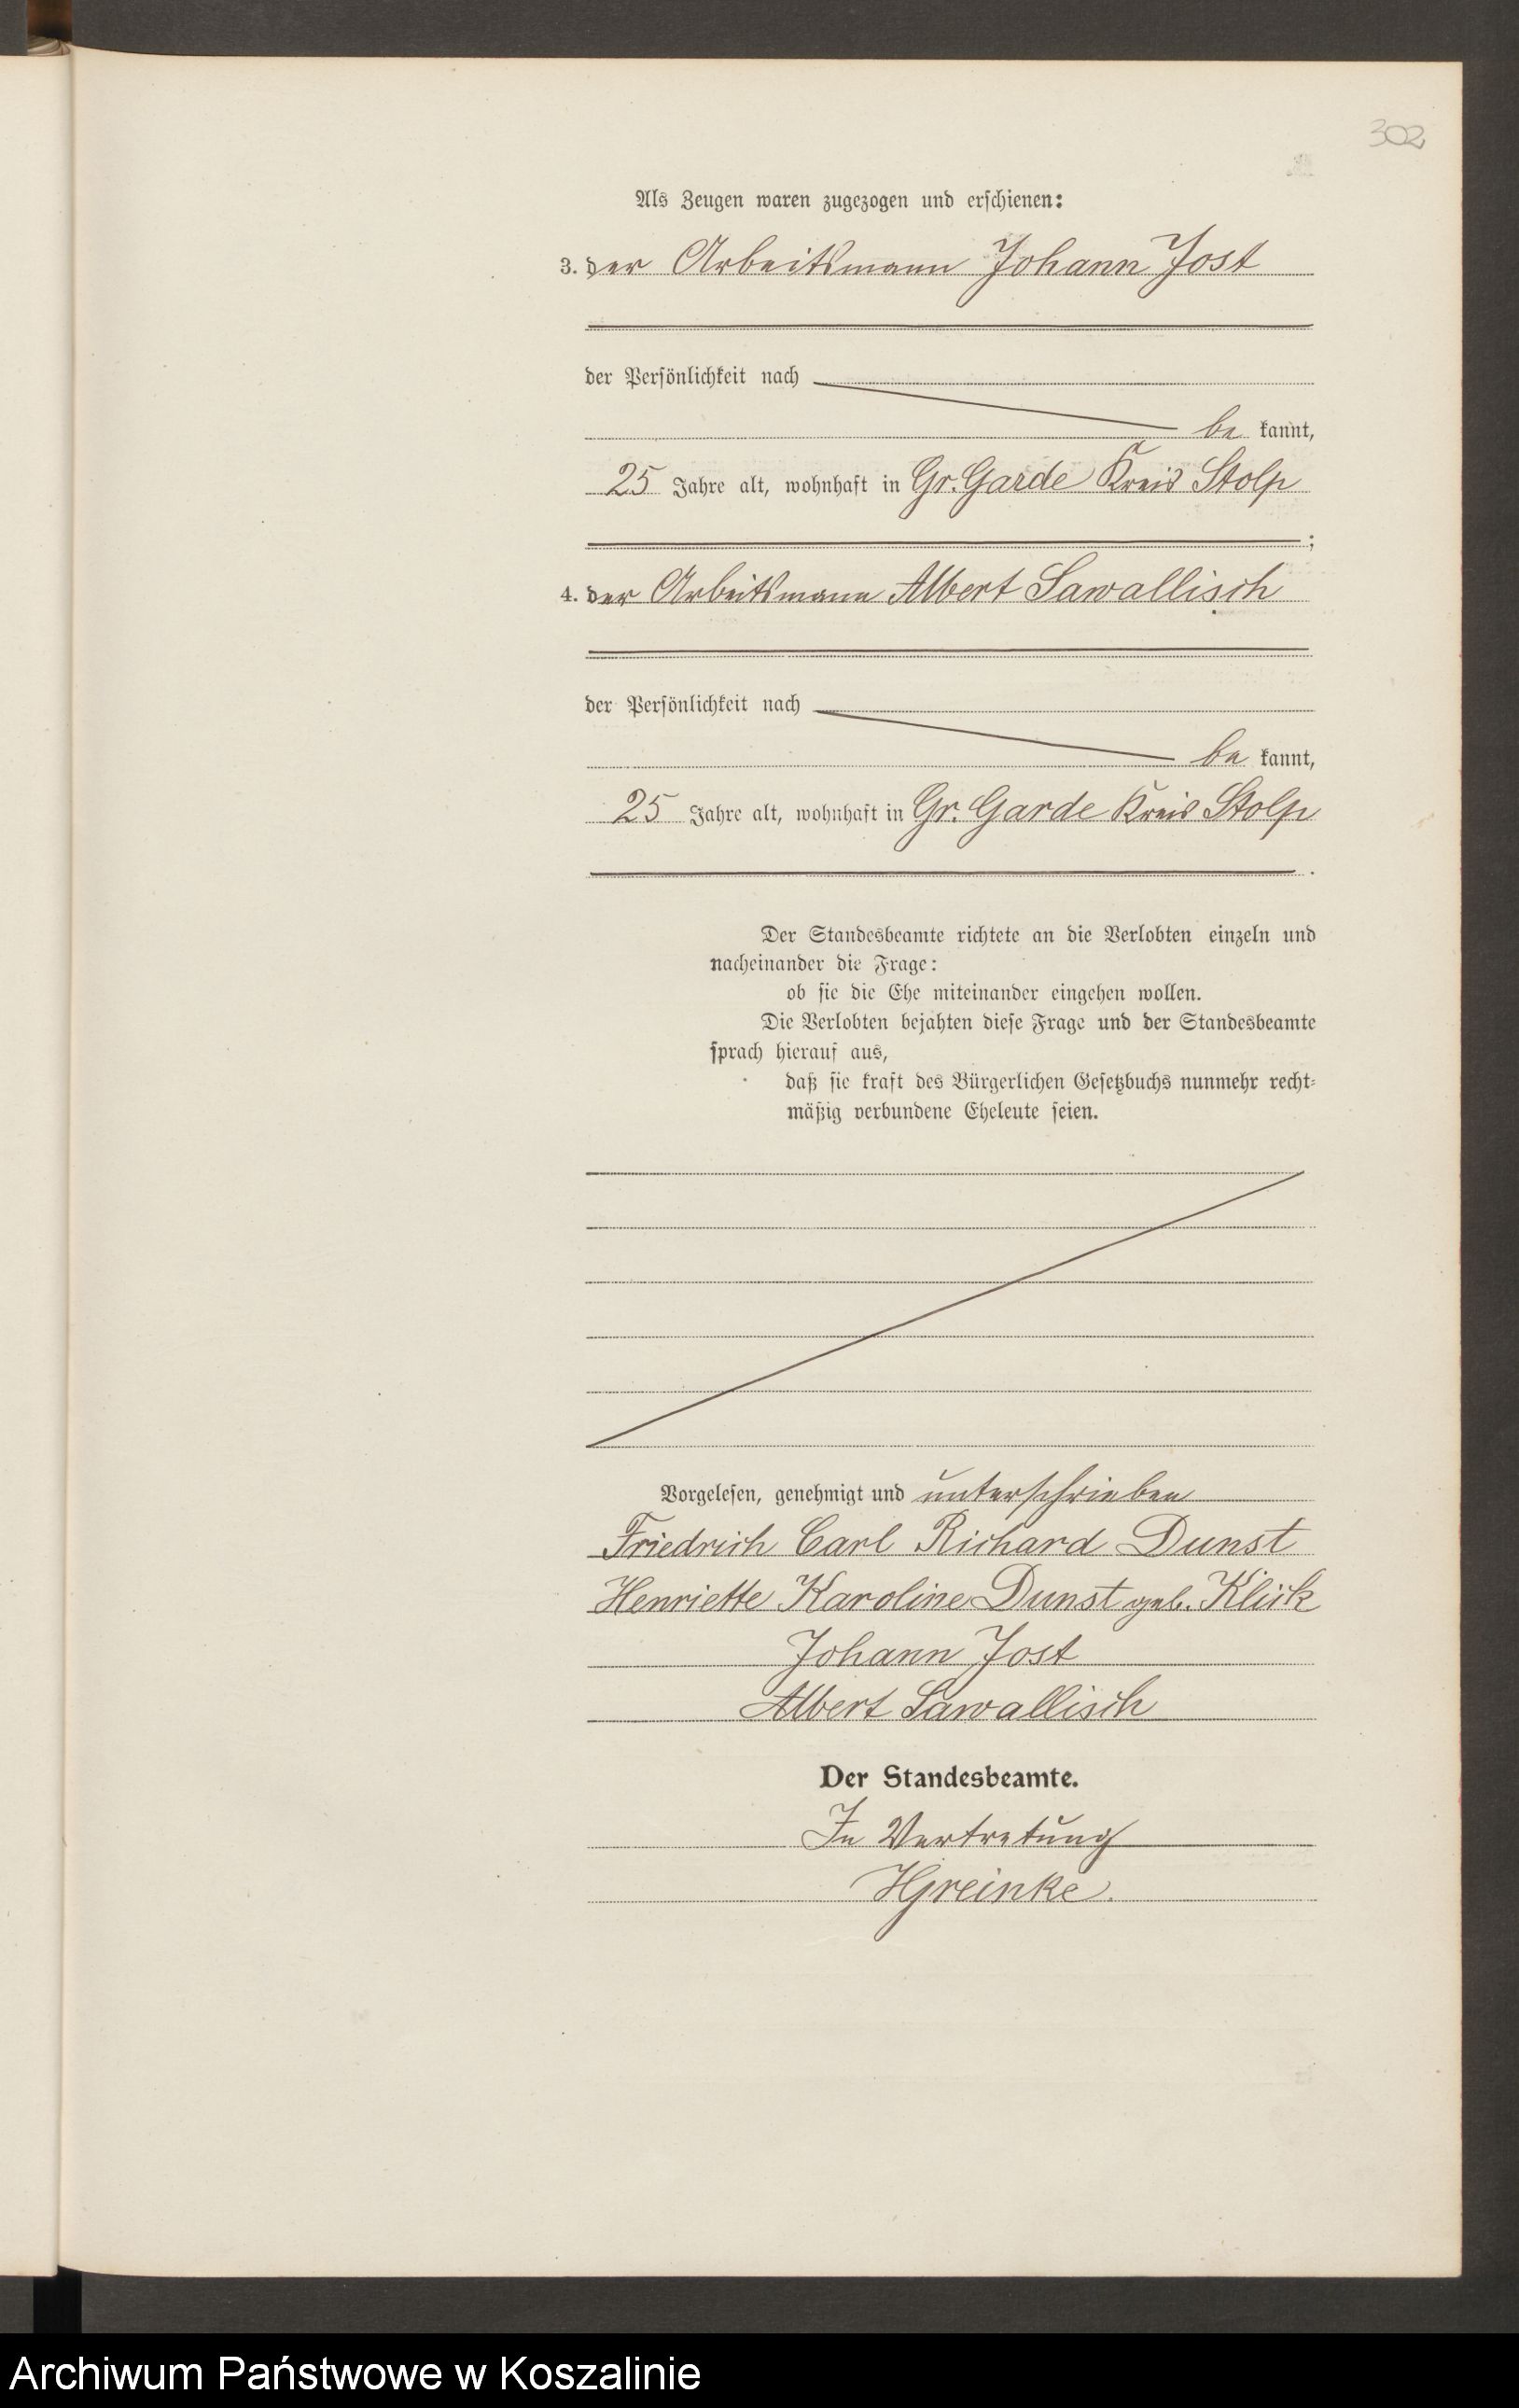 302
Als Zeugen waren zugezogen und erschienen:
3. der Arbeitsmann Johann Jost
der Persönlichkeit nach
be kannt,
25 Jahre alt, wohnhaft in Gr. Garde Kreis Stolp
;
4. der Arbeitsmann Albert Sawallisch
der Persönlichkeit nach
be kannt,
25 Jahre alt, wohnhaft in Gr. Garde Kreis Stolp
.
Der Standesbeamte richtete an die Verlobten einzeln und
nacheinander die Frage:
ob sie die Ehe miteinander eingehen wollen.
Die Verlobten bejahten diese Frage und der Standesbeamte
sprach hierauf aus,
daß sie kraft des Bürgerlichen Gesetzbuchs nunmehr recht-
mäßig verbundene Eheleute seien.
Vorgelesen, genehmigt und unterschrieben
Friedrich Carl Richard Dunst
Henriette Karoline Dunst geb. Klick
Johann Jost
Albert Sawallisch
Der Standesbeamte.
In Vertretung
HGreinke.
Archiwum Państwowe w Koszalinie